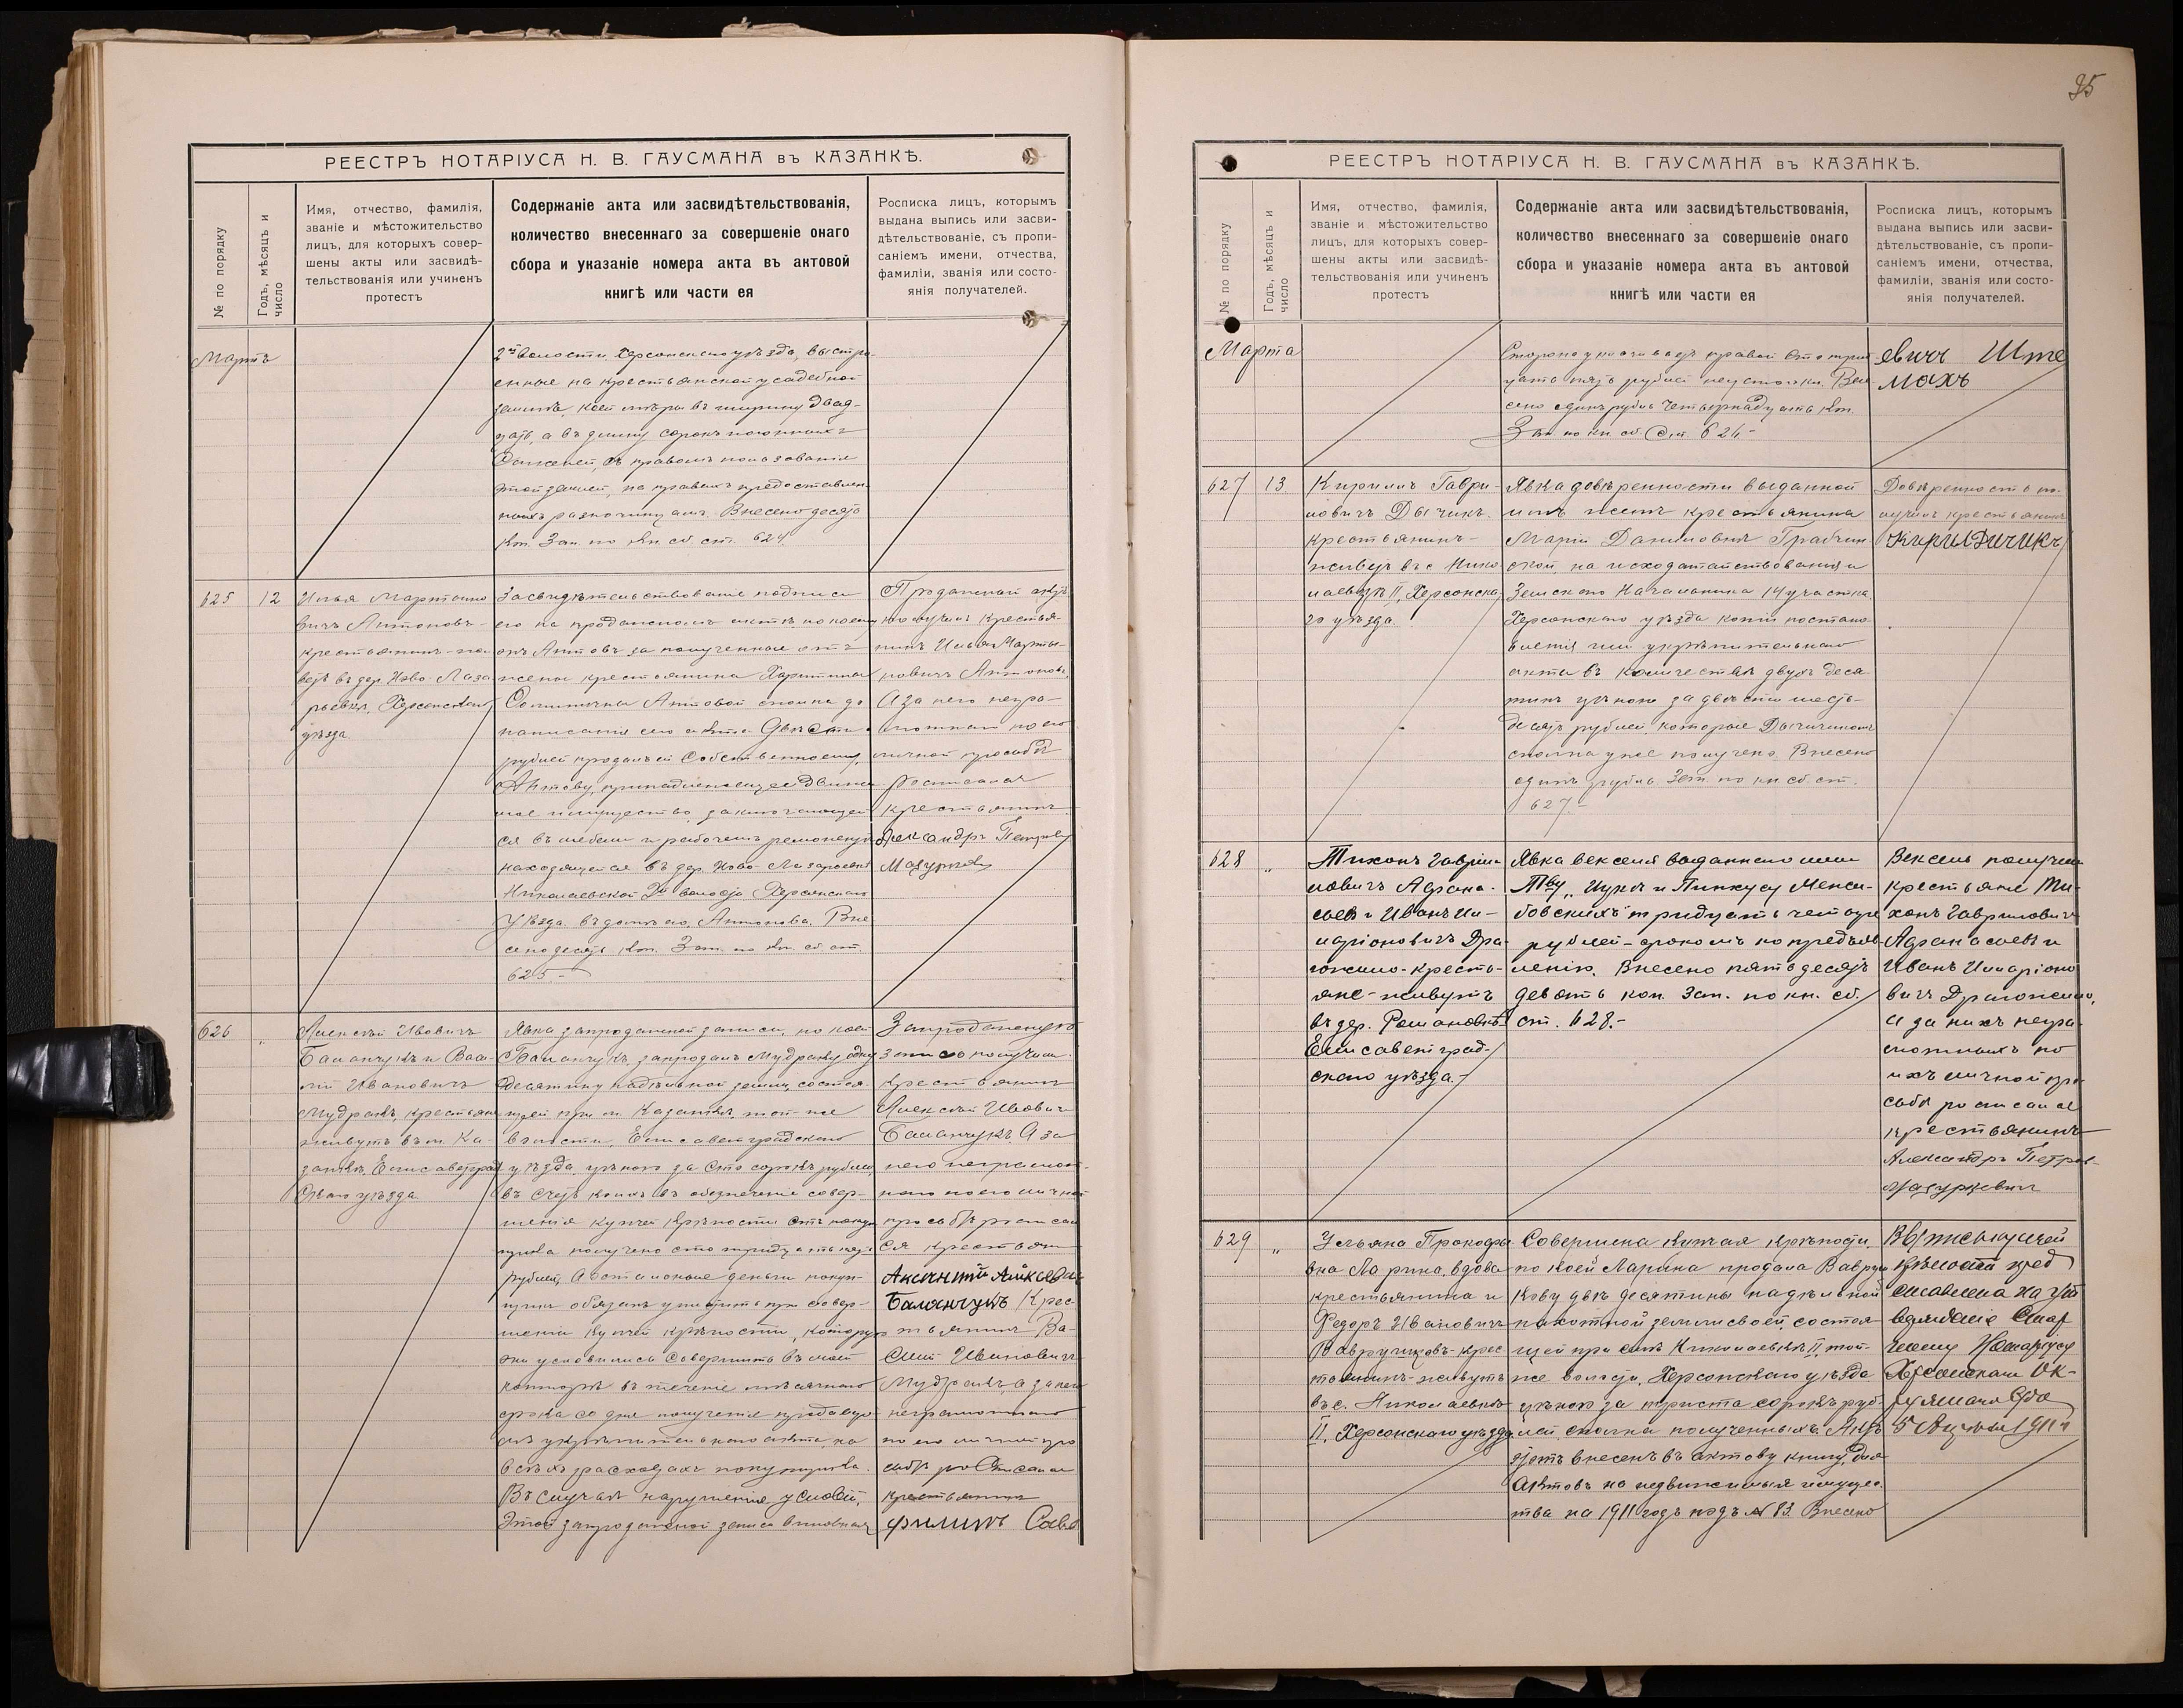 РЕЕСТРЪ НОТАРІУСА Н. В. ГАУСМАНА въ КАЗАНКѢ.
№ по порядку
Годъ, мѣсяцъ и число
Имя, отчество, фамилія,
званіе и мѣстожительство
лицъ, для которыхъ совер-
шены акты или засвидѣ-
тельствованія или учиненъ
протестъ
Содержаніе акта или засвидѣтельствованія,
количество внесеннаго за совершеніе онаго
сбора и указаніе номера акта въ актовой
книгѣ или части ея
Росписка лицъ, которымъ
выдана выпись или засви-
дѣтельствованіе, съ пропи-
саніемъ имени, отчества,
фамиліи, званія или состо-
янія получателей.
Мартъ
2й волости, Херсонскаго уѣзда, выстро-
енные на крестьянской усадебной
землѣ, коей мѣры въ ширину двад-
цать, а въ длину сорокъ погонныхъ
Саженей, съ правомъ пользованія
этой землей, на правахъ предоставлен-
ныхъ разночинцамъ. Внесено десять
Коп. Зап. по Кн. сб. ст. 624.
625
12
Илья Мартыно
вичъ Антоновъ-
крестьянинъ-жи
ветъ въ дер. Ново-Лаза
рьевкѣ, Херсонскаго
уѣзда
Засвидѣтельствованіе подписи
его на продажномъ актѣ, по коему
онъ Антоновъ за полученные отъ
жены крестьянина
написанія сего акта Двѣсти
рублей продалъ ей Собственное ему,
Антонову, принадлежащее движи
мое имущество, заключающее
ся въ мебели и рабочемъ
находящемся въ дер. Ново-Лазаревкѣ
Николаевской 2й волости Херсонскаго
Уѣзда, въ домѣ его, Антонова. Вне
сено десять Коп. Зап. по Кн. сб. ст.
625.-
Продажный актъ
получилъ Крестья-
нинъ Илья Марты-
новичъ Антоновъ,
А за него негра-
мотнаго по его
личной просьбѣ
росписался
крестьянинъ
Александръ Петровъ
Мазуркевъ
626
"
Алексѣй Ивовичъ
Баланчукъ и Васи-
лій Ивановичъ
Мудракъ, крестьяне
живутъ въ м. Ка-
занкѣ, Елисаветград
скаго уѣзда
Явка запродажной записи, по коей
Баланчукъ запродалъ Мудраку одну
десятину надѣльной земли, состоя-
щей при м. Казанкѣ, той-же
волости, Елисаветградскаго
уѣзда, цѣною за Сто сорокъ рублей,
въ счетъ коихъ въ обезпеченіе совер-
шенія купчей крѣпости отъ покуп
щика получено сто тридцать пять
рублей, А остальные деньги покуп-
щикъ обязанъ уплатить при совер-
шеніи купчей крѣпости, котору
они условились Совершить въ моей
конторѣ въ теченіе мѣсячнаго
срока со дня полученія продавцо
мъ укрѣпительнаго акта, на
всѣхъ расходахъ покупщика.
Въ случаѣ нарушенія условій,
Этой запродажной записи виновная
Запродажную
запись получили
Крестьянинъ
Алексѣй Ивовичъ
Баланчукъ, А за
него неграмот-
наго по его личной
просьбѣ росписал
ся крестьян
Баланчукъ Крес-
тьянинъ Ва-
силій Ивановичъ
Мудракъ, а за него
неграмотнаго
по его личной про
сьбѣ росписался
крестьянинъ
Филипъ Савв
95
РЕЕСТРЪ НОТАРІУСА Н. В. ГАУСМАНА въ КАЗАНКѢ.
№ по порядку
Годъ, мѣсяцъ и число
Имя, отчество, фамилія,
званіе и мѣстожительство
лицъ, для которыхъ совер-
шены акты или засвидѣ-
тельствованія или учиненъ
протестъ
Содержаніе акта или засвидѣтельствованія,
количество внесеннаго за совершеніе онаго
сбора и указаніе номера акта въ актовой
книгѣ или части ея
Росписка лицъ, которымъ
выдана выпись или засви-
дѣтельствованіе, съ пропи-
саніемъ имени, отчества,
фамиліи, званія или состо-
янія получателей.
Марта
Сторона уплачиваетъ правой Сто трид
цать пять рублей неустойки. Вне
сено одинъ рубль Четырнадцать Коп.
Зап. по кн. сб. Ст. 626.-
евичъ Шпе
махъ
627
13
Кирилъ Гаври-
ловичъ Дычикъ.
крестьянинъ-
живетъ въ с. Нико
лаевкѣ II, Херсонска
го уѣзда.
Явка довѣренности выданной
имъ женѣ крестьянина
Маріи Даниловнѣ
ской на исходатайствованія и
Земскаго Начальника 14 участка
Херсонскаго уѣзда копіи постано
вленія или укрѣпительнаго
акта въ количествѣ двухъ деся
тинъ цѣною за двѣсти шесть-
десятъ рублей, которые Дычикомъ
сполна у нее получено. Внесено
одинъ рубль. Зап. по кн. сб. ст.
627.-
Довѣренность по-
лучилъ крестьянинъ
Кирил Дичикъ
628
"
Тихонъ Гаврии
ловичъ Адзана-
сьевъ и Иванъ Ил-
ларіоновичъ Дра
гожило-кресть-
яне-живутъ
въ дер. Романовкѣ
Елисаветград-
скаго уѣзда.-
Явка векселя выданнаго ими
Тву „Ицко и Пинкусу Менси-
бовскихъ" тридцать четыре
рублей-срокомъ по предъяв-
ленію. Внесено пятьдесятъ
девять коп. Зап. по кн. сб.
ст. 628.-
Вексель получили
крестьяне Ти-
хонъ Гавриловичъ
Адзанасьевъ и
Иванъ Илларіоно
вичъ Драгожило,
А за нихъ негра-
мотныхъ по
ихъ личной про
сьбѣ росписался
крестьянинъ
Александръ Петров-
Мазуркевич
629
"
Ульяна Прокофь
вна Ларина, вдова
крестьянина и
Федоръ Ивановичъ
Ваврущковъ-крес
тьянинъ-живутъ
въ с. Николаевкѣ
II. Херсонскаго уѣзда
Совершена Купчая крѣпость,
по коей Ларина продала Вавру
кову двѣ десятины надѣльной
пахотной земли своей, состоя
щей при селѣ Николаевкѣ II той-
же волости, Херсонскаго уѣзда
цѣною за триста сорокъ руб-
лей, сполна полученныхъ. Актъ
этотъ внесенъ въ актову книгу для
Актовъ на недвижимыя имущес.
тва на 1911 годъ подъ № 83. Внесено
Выпись купчей
крѣпости пред
ставлена на ут
вержденіе Стар
шему Нотаріусу
Херсонскаго Ок-
ружнаго Суда
5 Апрѣля 1911 г